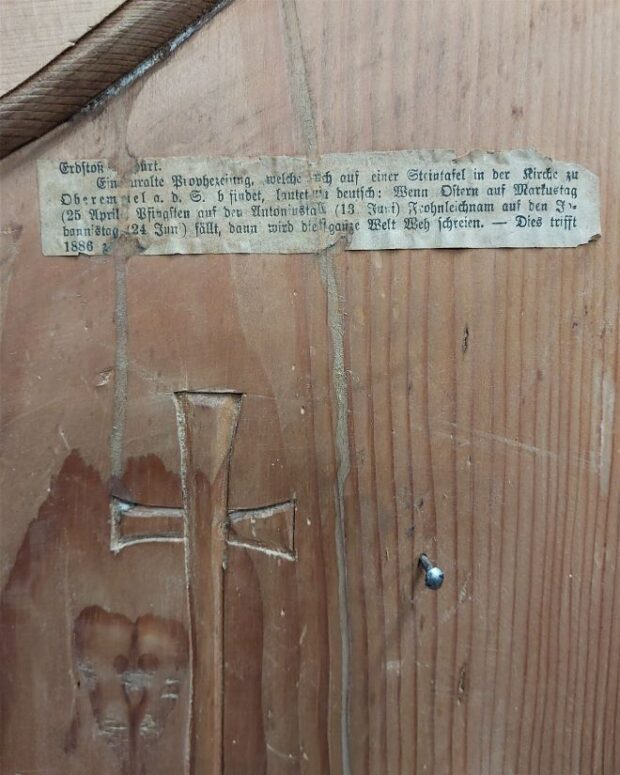 Erdstoß
Ein uralte Prophezeiung, welche sich auf einer Steintafel in der Kirche zu
Oberemmel a. d. S. befindet, lautet zu deutsch: Wenn Ostern auf Markustag
(25 April) Pfingsten auf den Antoniustag (13 Juni) Frohnleichnam auf den Jo-
hannistag (24 Juni) fällt, dann wird die ganze Welt Weh schreien. — Dies trifft
1886